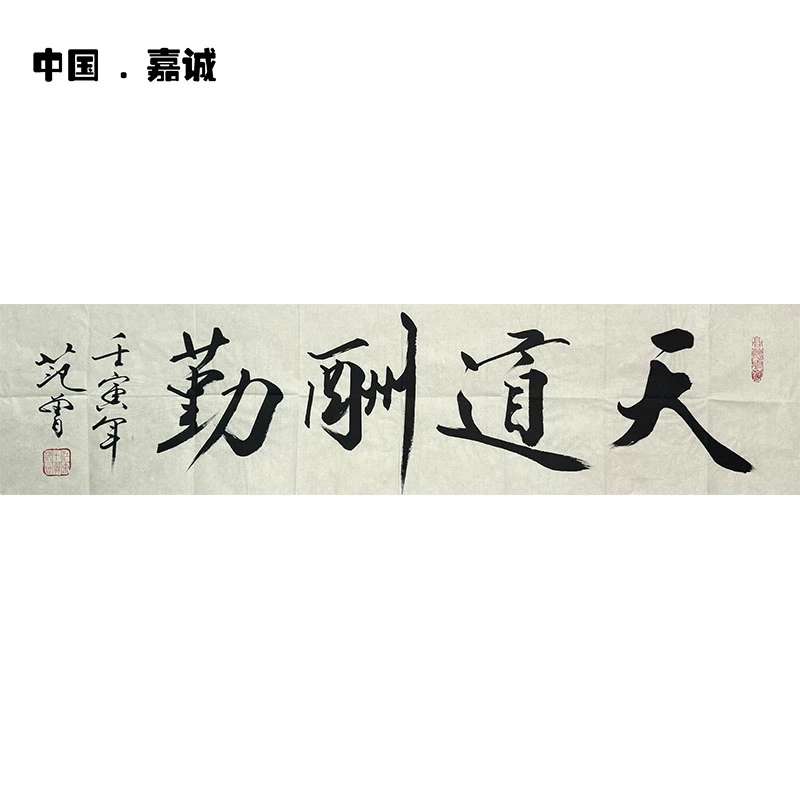 中国．嘉诚
天道酬勤
壬寅年
范曾